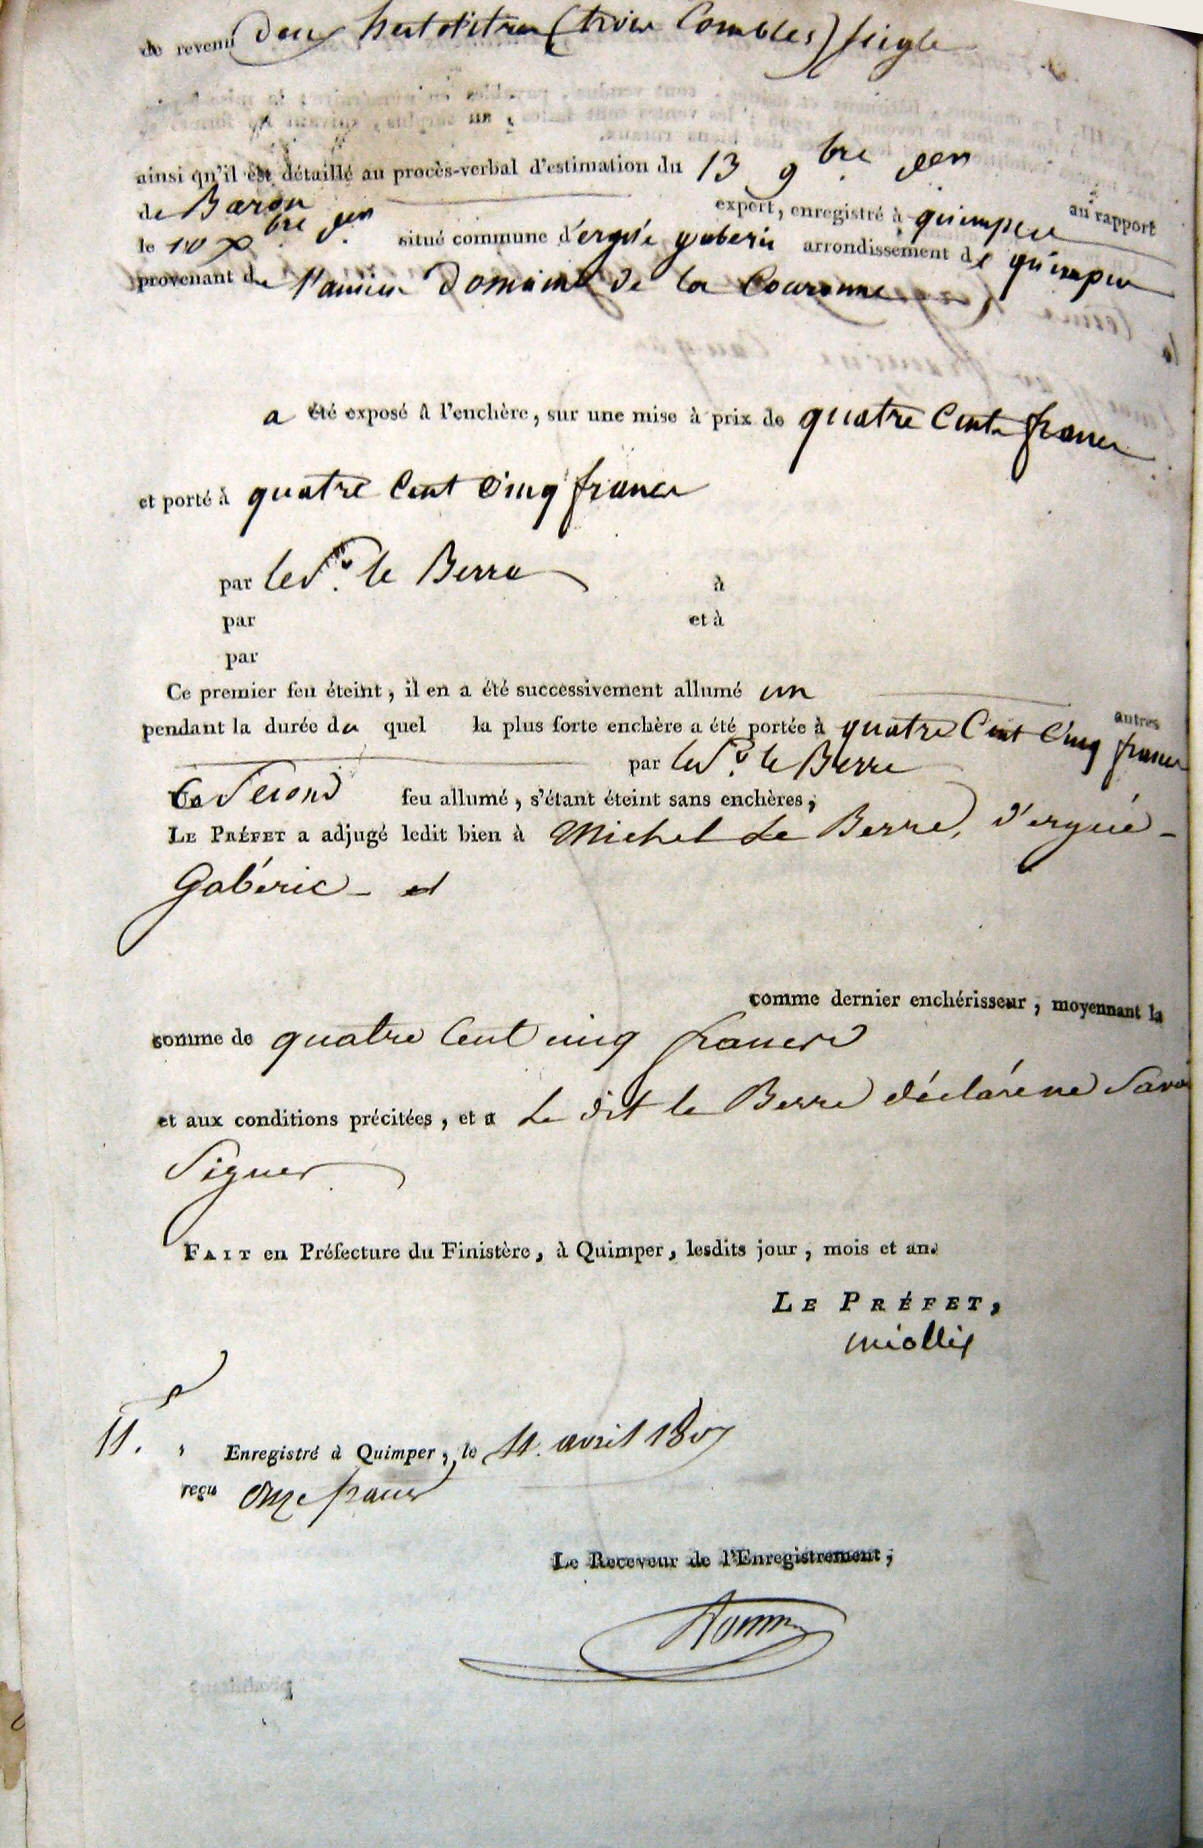 de revenu deux hectolitres (trois Combles) seigle
ainsi qu'il est détaillé au procès-verbal d'estimation du 13 9bre dern
de Baron expert, enregistré à quimper au rapport
le 10 Xbre dern situé commune d'ergué gaberic arrondissement de quimper
provenant de l'ancien Domaine de la Couronne
a été exposé à l'enchère, sur une mise à prix de quatre Cents francs
et porté à quatre Cent Cinq francs
par le Sr. le Berre à
par et à
par
Ce premier feu éteint, il en a été successivement allumé un autres
pendant la durée du quel la plus forte enchère a été portée à quatre Cent Cinq francs
par le Sr. le Berre
Ce Second feu allumé, s'étant éteint sans enchères,
LE PRÉFET a adjugé ledit bien à Michel Le Berre, d'ergué-
Gabéric - et
comme dernier enchérisseur, moyennant la
somme de quatre Cent cinq francs
et aux conditions précitées, et a Le dit le Berre déclaré ne Savoir
Signer
FAIT en Préfecture du Finistère, à Quimper, lesdits jour, mois et an.
LE PRÉFET,
Miollis
11. Enregistré à Quimper, le 11. avril 1807
reçu Onze francs
Le Receveur de l'Enregistrement,